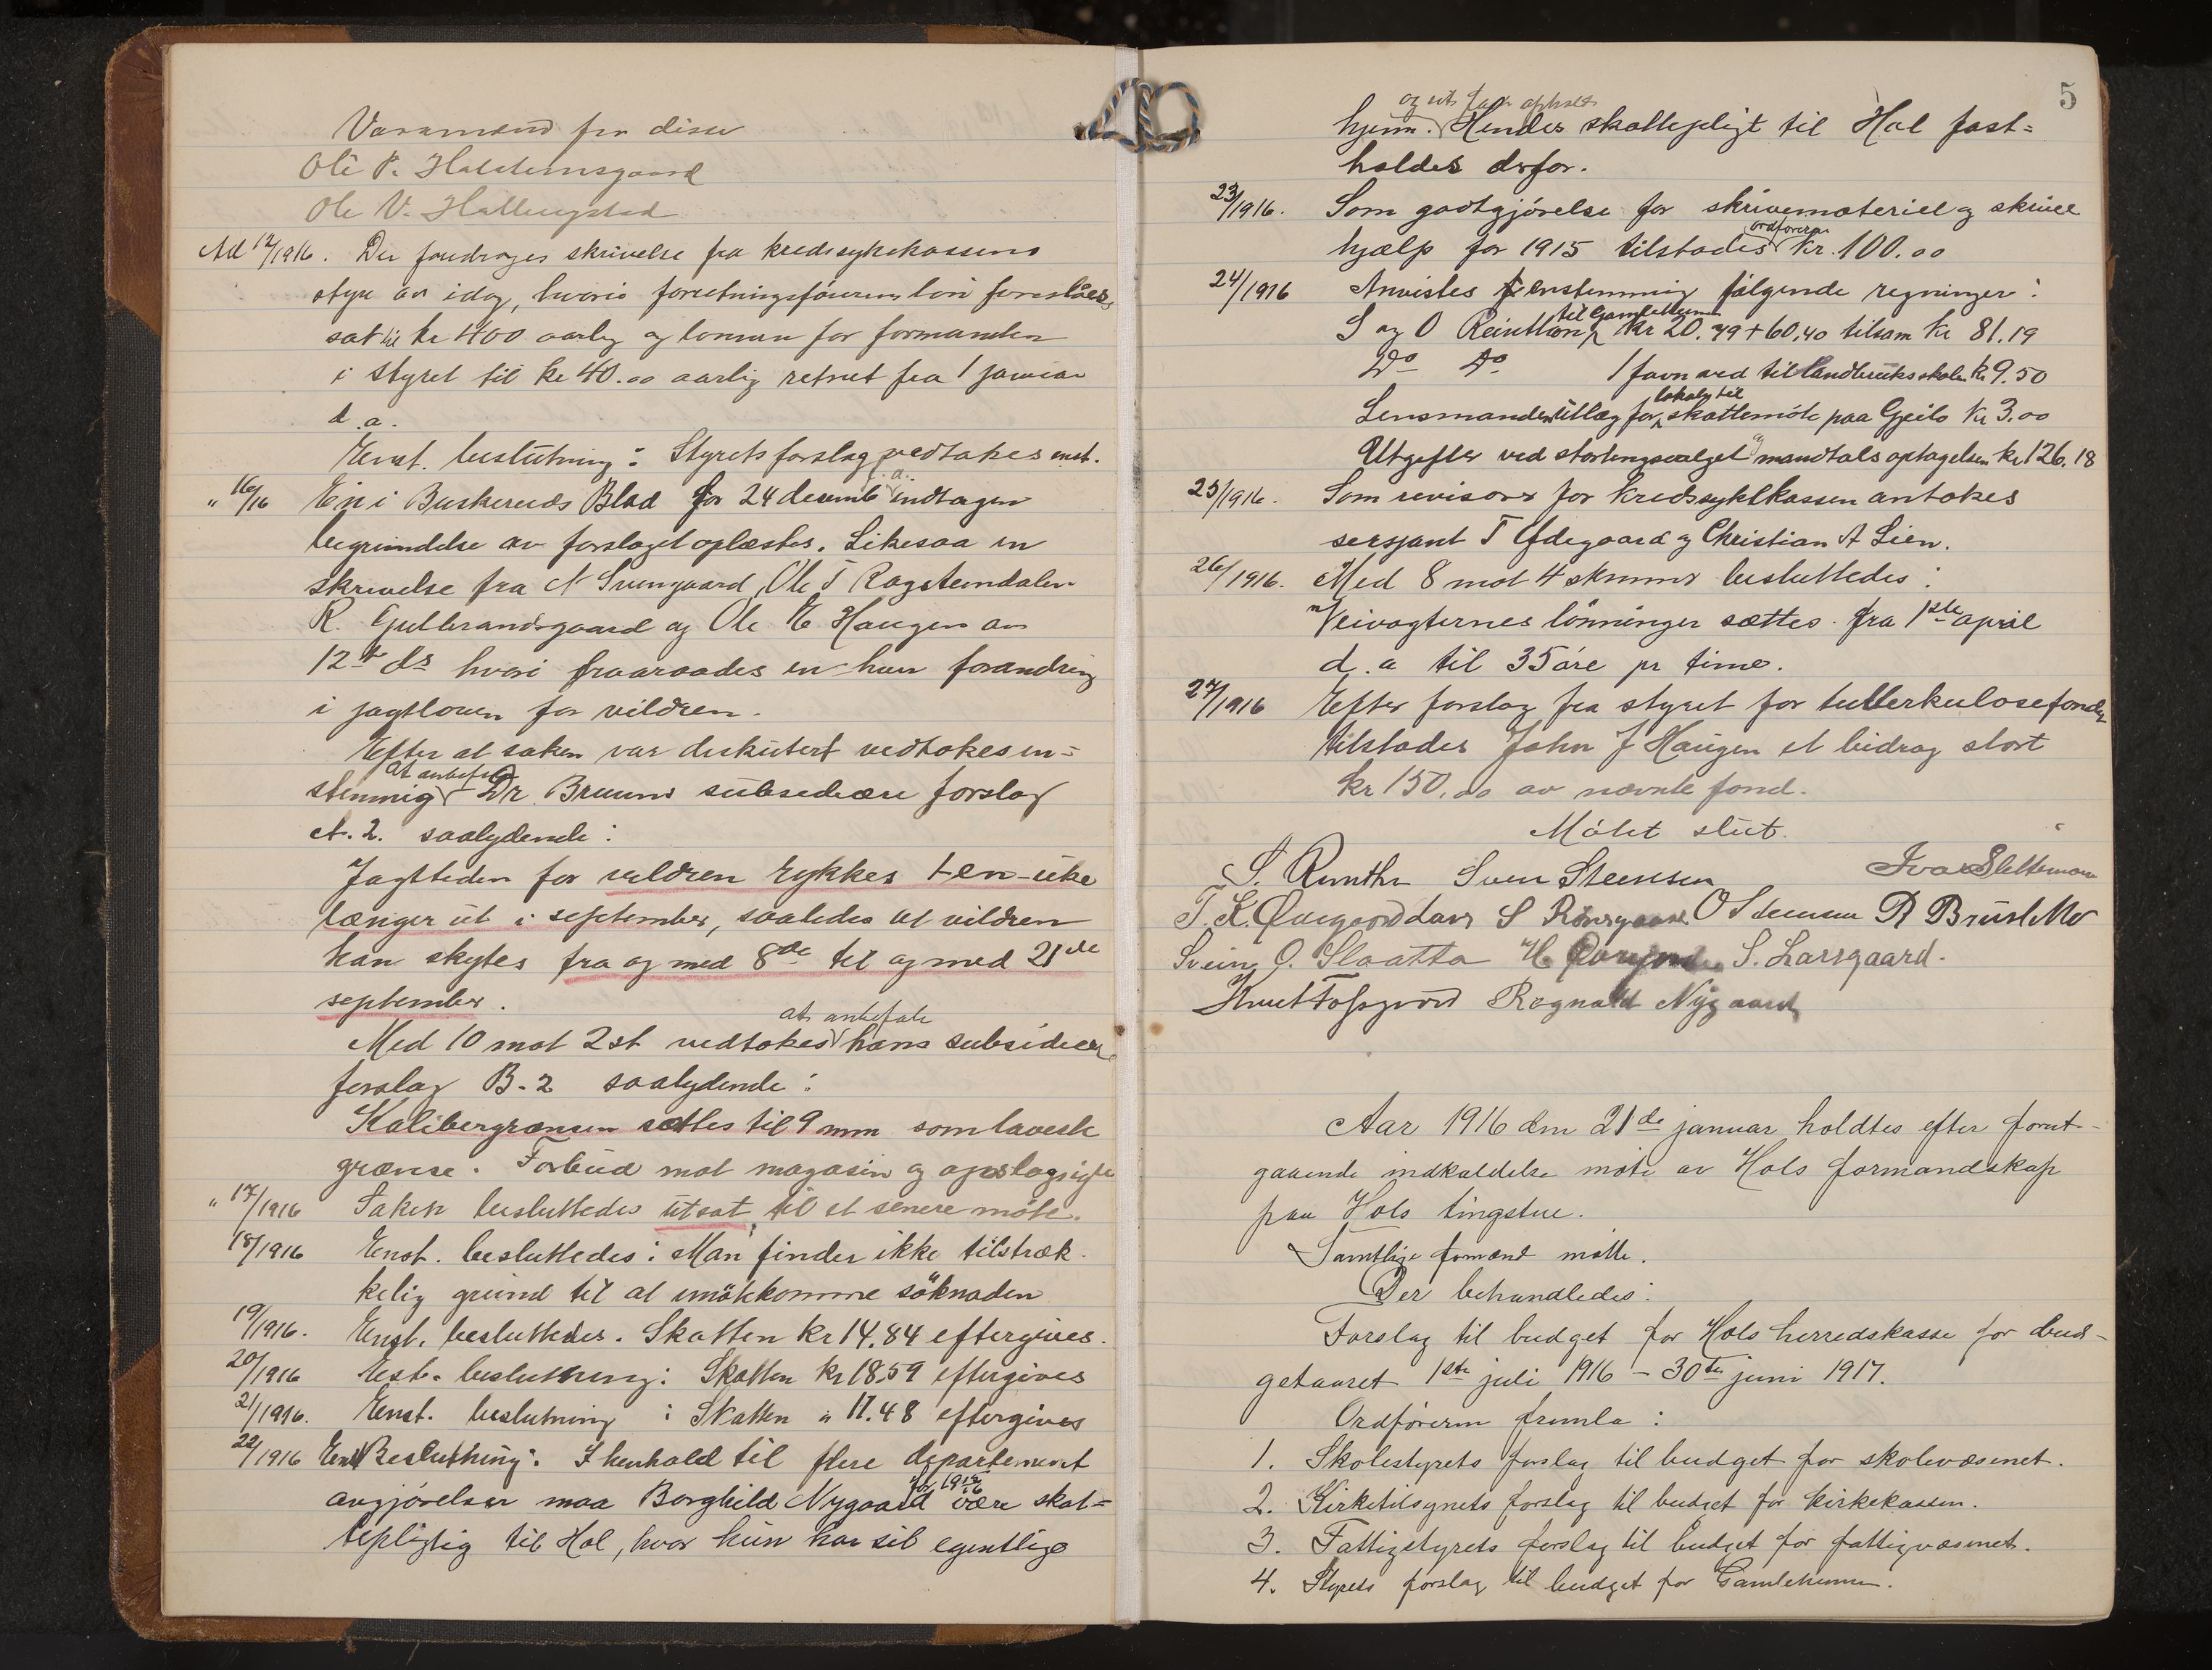 Varamænd for disse
Ole P. Holstensgaard
Ole V. Hallingstad
Ad 12/1916. Der fordroges skrivelse fra kredssykekassens
styre av idag, hvori forretningsførerens løn foreslåes
sat til kr 400 aarlig og lønnen for formanden
i styret til kr 40.00 aarlig retnet fra 1 januar
d.a.
Enst. beslutning: Styrets forslag vedtakes enst.
" 16/16 En i Buskeruds Blad for 24 decemb f.a. indtagen
begrundelse av forslaget oplæstes. Likesaa en
skrivelse fra N Sveingaard, Ole T Ragsteindalen
R. Gulbrandsgaard og Ole E Haugen av
12te ds hvori fraaraades en hver forandring
i jagtloven for vildren.
Efter at saken var diskutert vedtokes en=
stemmig at anbefale Dr. Bruuns subsidiære forslag
A. 2. saalydende:
Jagttiden for vildren rykkes 1 en uke
længer ut i september, saaledes at vildren
kan skytes fra og med 8de til og med 21de
september.
Med 10 mot 2 st vedtokes at anbefale hans subsidiære
forslag B. 2 saalydende:
Kalibergrænsen sættes til 9 mm som laveste
grænse. Forbud mot magasin og opslagsigte
" 17/1916 Saken besluttedes utsat til et senere møte.
18/1916 Enst. besluttedes: Man finder ikke tilstræk-
kelig grund til at imøtekomme søknaden
19/1916. Enst. besluttedes. Skatten kr 14.84 eftergives.
20/1916 Enst. beslutning: Skatten kr 18.59 eftergives
21/1916. Enst. beslutning: Skatten " 17.48 eftergives
22/1916 Enst Beslutning: I henhold til flere departement
avgjørelser maa Borghild Nygaard for 1915/16 være skat=
tepligtig til Hol, hvor hun har sit egentlige
5
hjem. og sit faste ophold Hendes skattepligt til Hol fast=
holdes derfor.
23/1916. Som godtgjørelse for skrivemateriel og skrive
hjælp for 1915 tilstodes ordføreren kr. 100.00
24/1916 Anvistes enstemmig følgende regninger:
S og O Reinton til Gamlehemmet kr 20.79 + 60.40 tilsam kr 81.19
Do Do 1 favn ved til landbruksskolen kr 9.50
Lensmandens utlæg for lokale til skattemøte paa Geilo kr 3.00
Utgifter ved stortingsvalget og mandtalsoptagelsen kr 126.18
25/1916. Som revisorer for kredssykekassen antokes
sersjant T Ødegaard og Christian A Lien.
26/1916. Med 8 mot 4 stemmer besluttedes:
Veivogternes lønninger sættes fra 1ste april
d.a til 35 øre pr time.
27/1916 Efter forslag fra styret for tuberkulosefondet
tilstodes John J Haugen et bidrag stort
kr 150.00 av nævnte fond.
Møtet slut.
S. Reinton Sven Steensen Ivar Slettemoen
T. K. S Rønsgaard O Steensen R Brusletto
Svein O. Slaatta H. S. Larsgaard.
Knut Fossgård Ragnald Nygaard
Aar 1916 den 21de januar holdtes efter forut-
gaaende indkaldelse møte av Hols formandskap
paa Hols tingstue.
Samtlige formænd møtte.
Der behandledes:
Forslag til budget for Hols herredskasse for bud-
getaaret 1ste juli 1916 – 30te juni 1917.
Ordføreren fremla:
1. Skolestyrets forslag til budget for skolevæsenet.
2. Kirketilsynets forslag til budget for kirkekassen.
3. Fattigstyrets forslag til budget for fattigvæsenet.
4. Styrets forslag til budget for Gamlehemmet.